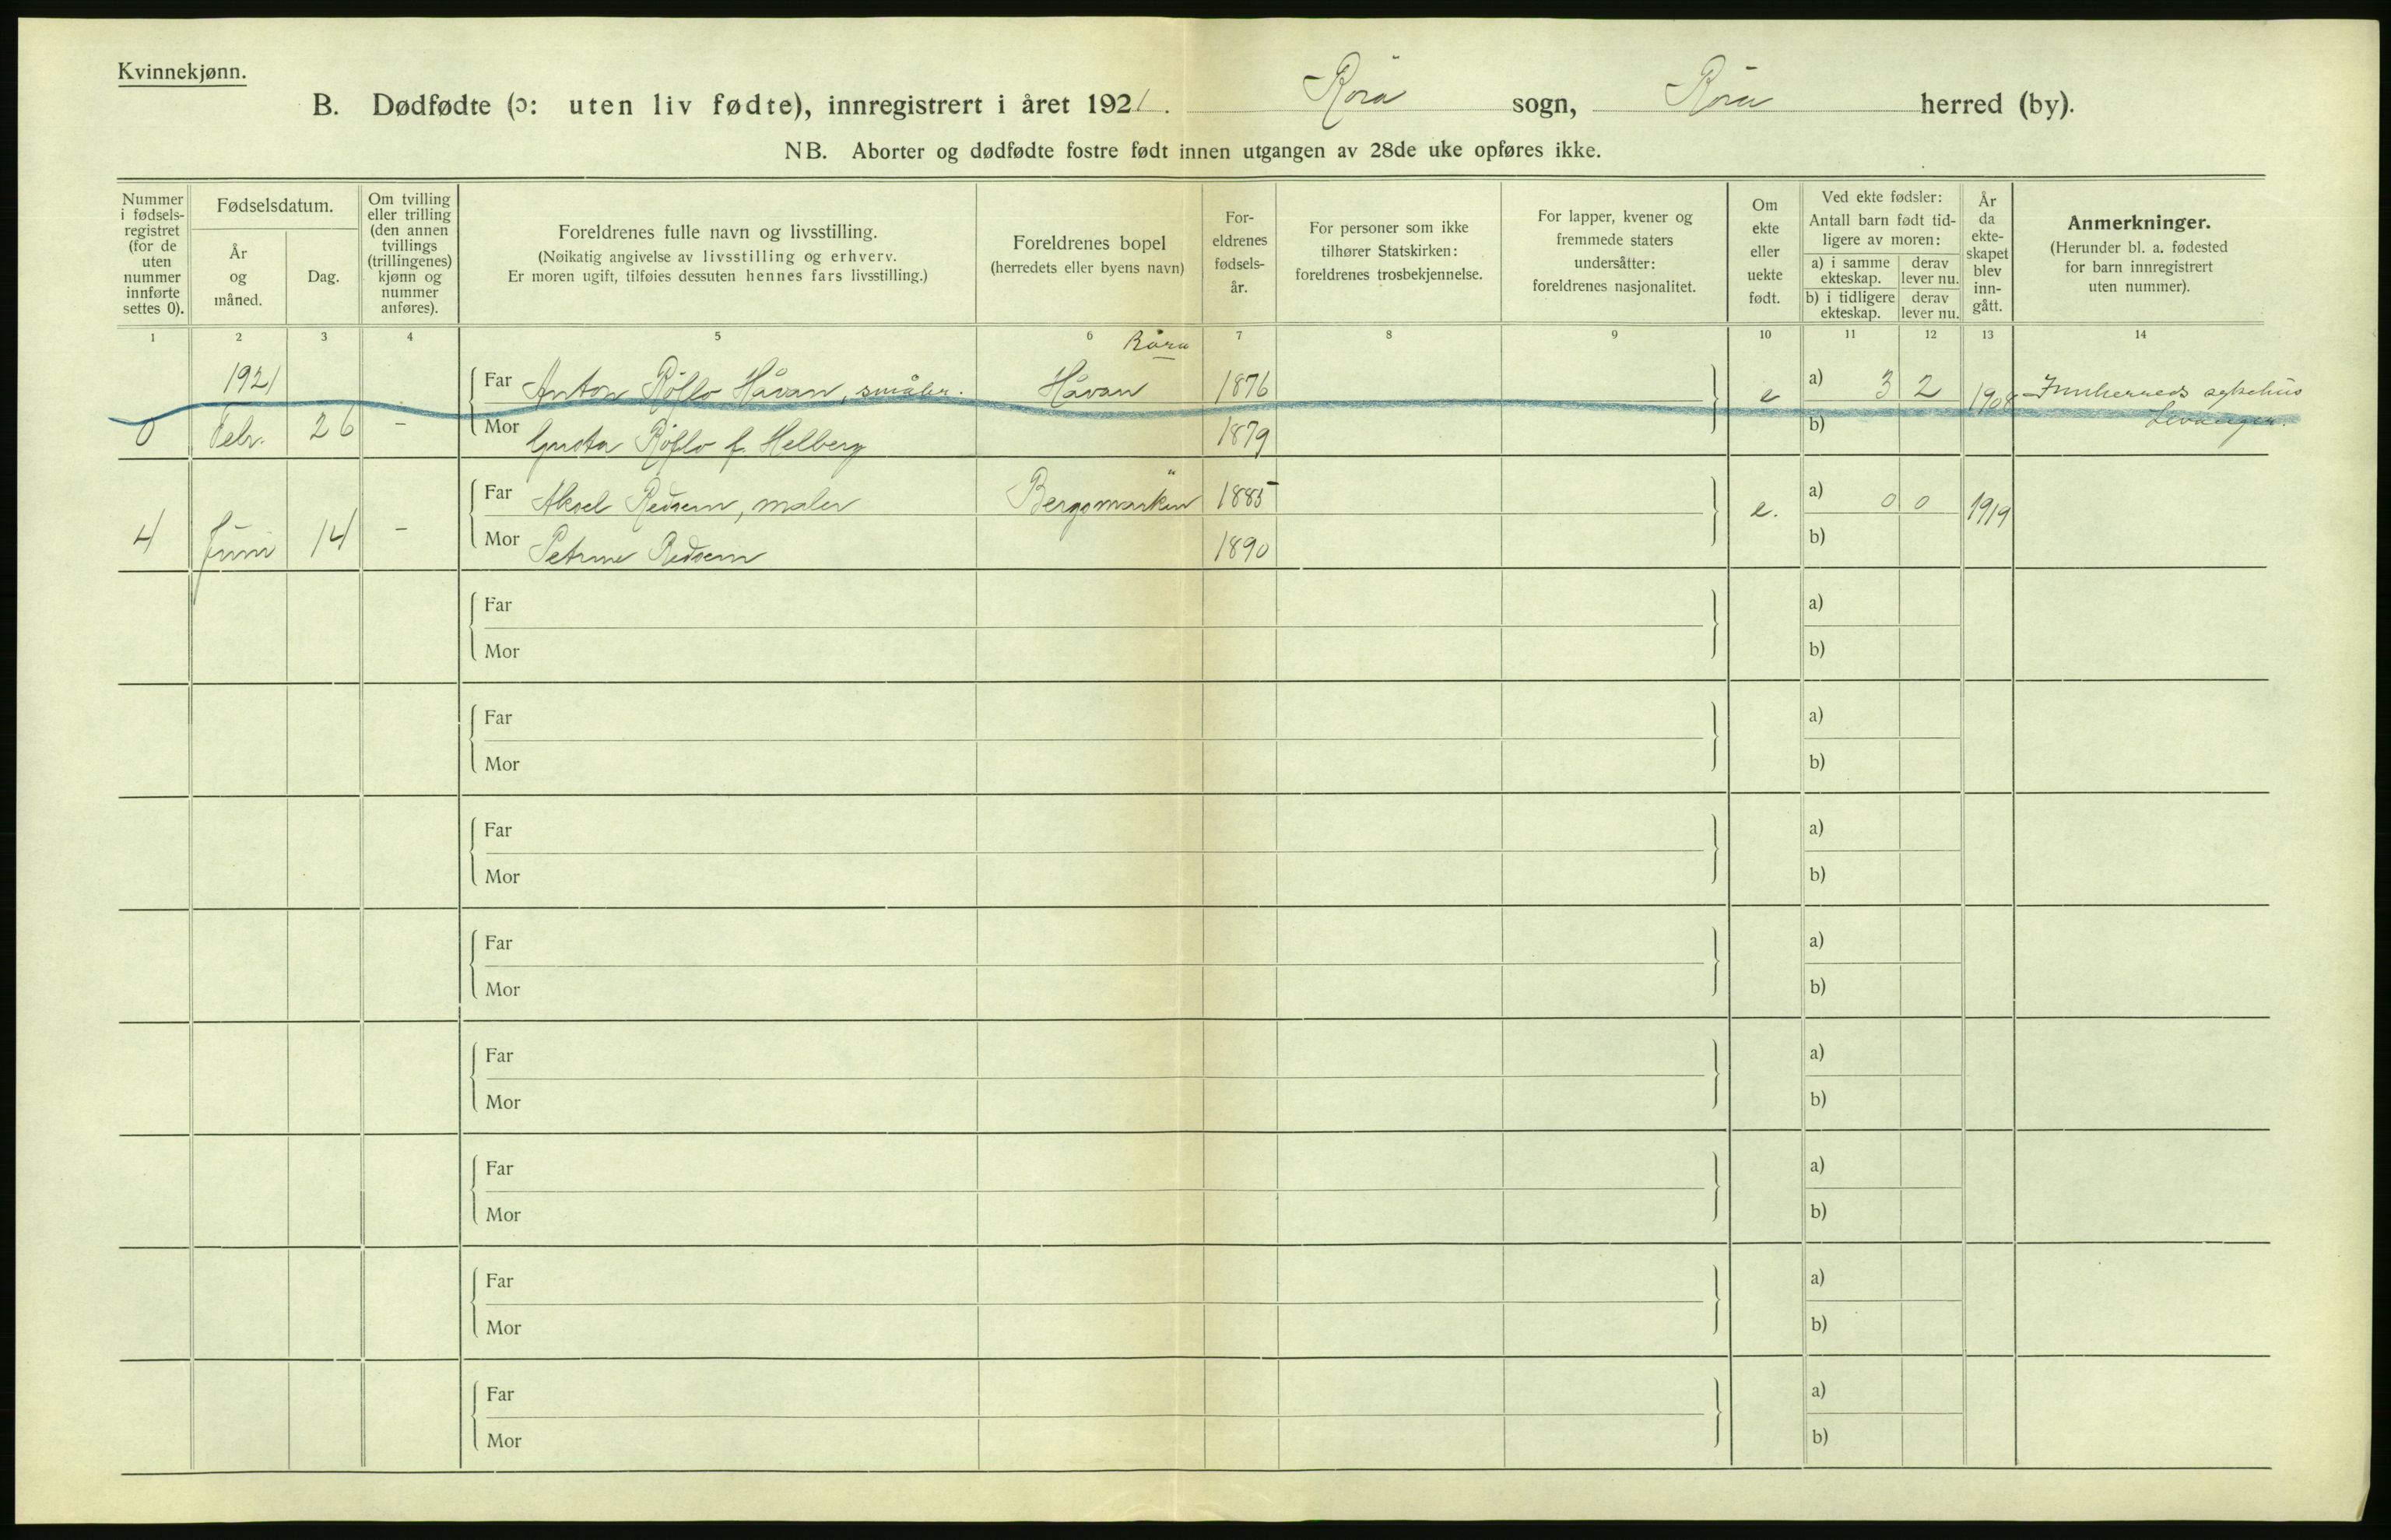 Kvinnekjønn.
B. Dødfødte (ɔ: uten liv fødte), innregistrert i året 1921. Röra sogn, Röra herred (by).
NB. Aborter og dødfødte fostre født innen utgangen av 28de uke opføres ikke.
Nummer i fødsels-registret (for de uten nummer innførte settes 0).
Fødselsdatum.
År og måned.
Dag.
Om tvilling eller trilling (den annen tvillings (trillingenes) kjønn og nummer anføres).
Foreldrenes fulle navn og livsstilling.
(Nøikatig angivelse av livsstilling og erhverv.
Er moren ugift, tilføies dessuten hennes fars livsstilling.)
Foreldrenes bopel
(herredets eller byens navn)
For-eldrenes fødsels-år.
For personer som ikke tilhører Statskirken: foreldrenes trosbekjennelse.
For lapper, kvener og fremmede staters undersåtter: foreldrenes nasjonalitet.
Om ekte eller uekte født.
Ved ekte fødsler:
Antall barn født tid-ligere av moren:
a) i samme ekteskap.
derav lever nu.
b) i tidligere ekteskap.
derav lever nu.
År da ekte-skapet blev inn-gått.
Anmerkninger.
(Herunder bl. a. fødested for barn innregistrert uten nummer).
1 2 3 4 5 6 7 8 9 10 11 12 13 14
Röra
1921 Far Anton Röflo Håvan, småbr. Håvan 1876 e a) 3 2 1908 Innherreds sykehus
0 Febr. 26 - Mor Gusta Röflo f. Helberg 1879 b) Levanger.
"
Far Aksel Redsem, maler Bergsmarken 1885 e. a) 0 0 1919
4 Juni 14 - Mor Petrine Redsem 1890 b)
Far a)
Mor b)
Far a)
Mor b)
Far a)
Mor b)
Far a)
Mor b)
Far a)
Mor b)
Far a)
Mor b)
Far a)
Mor b)
Far a)
Mor b)